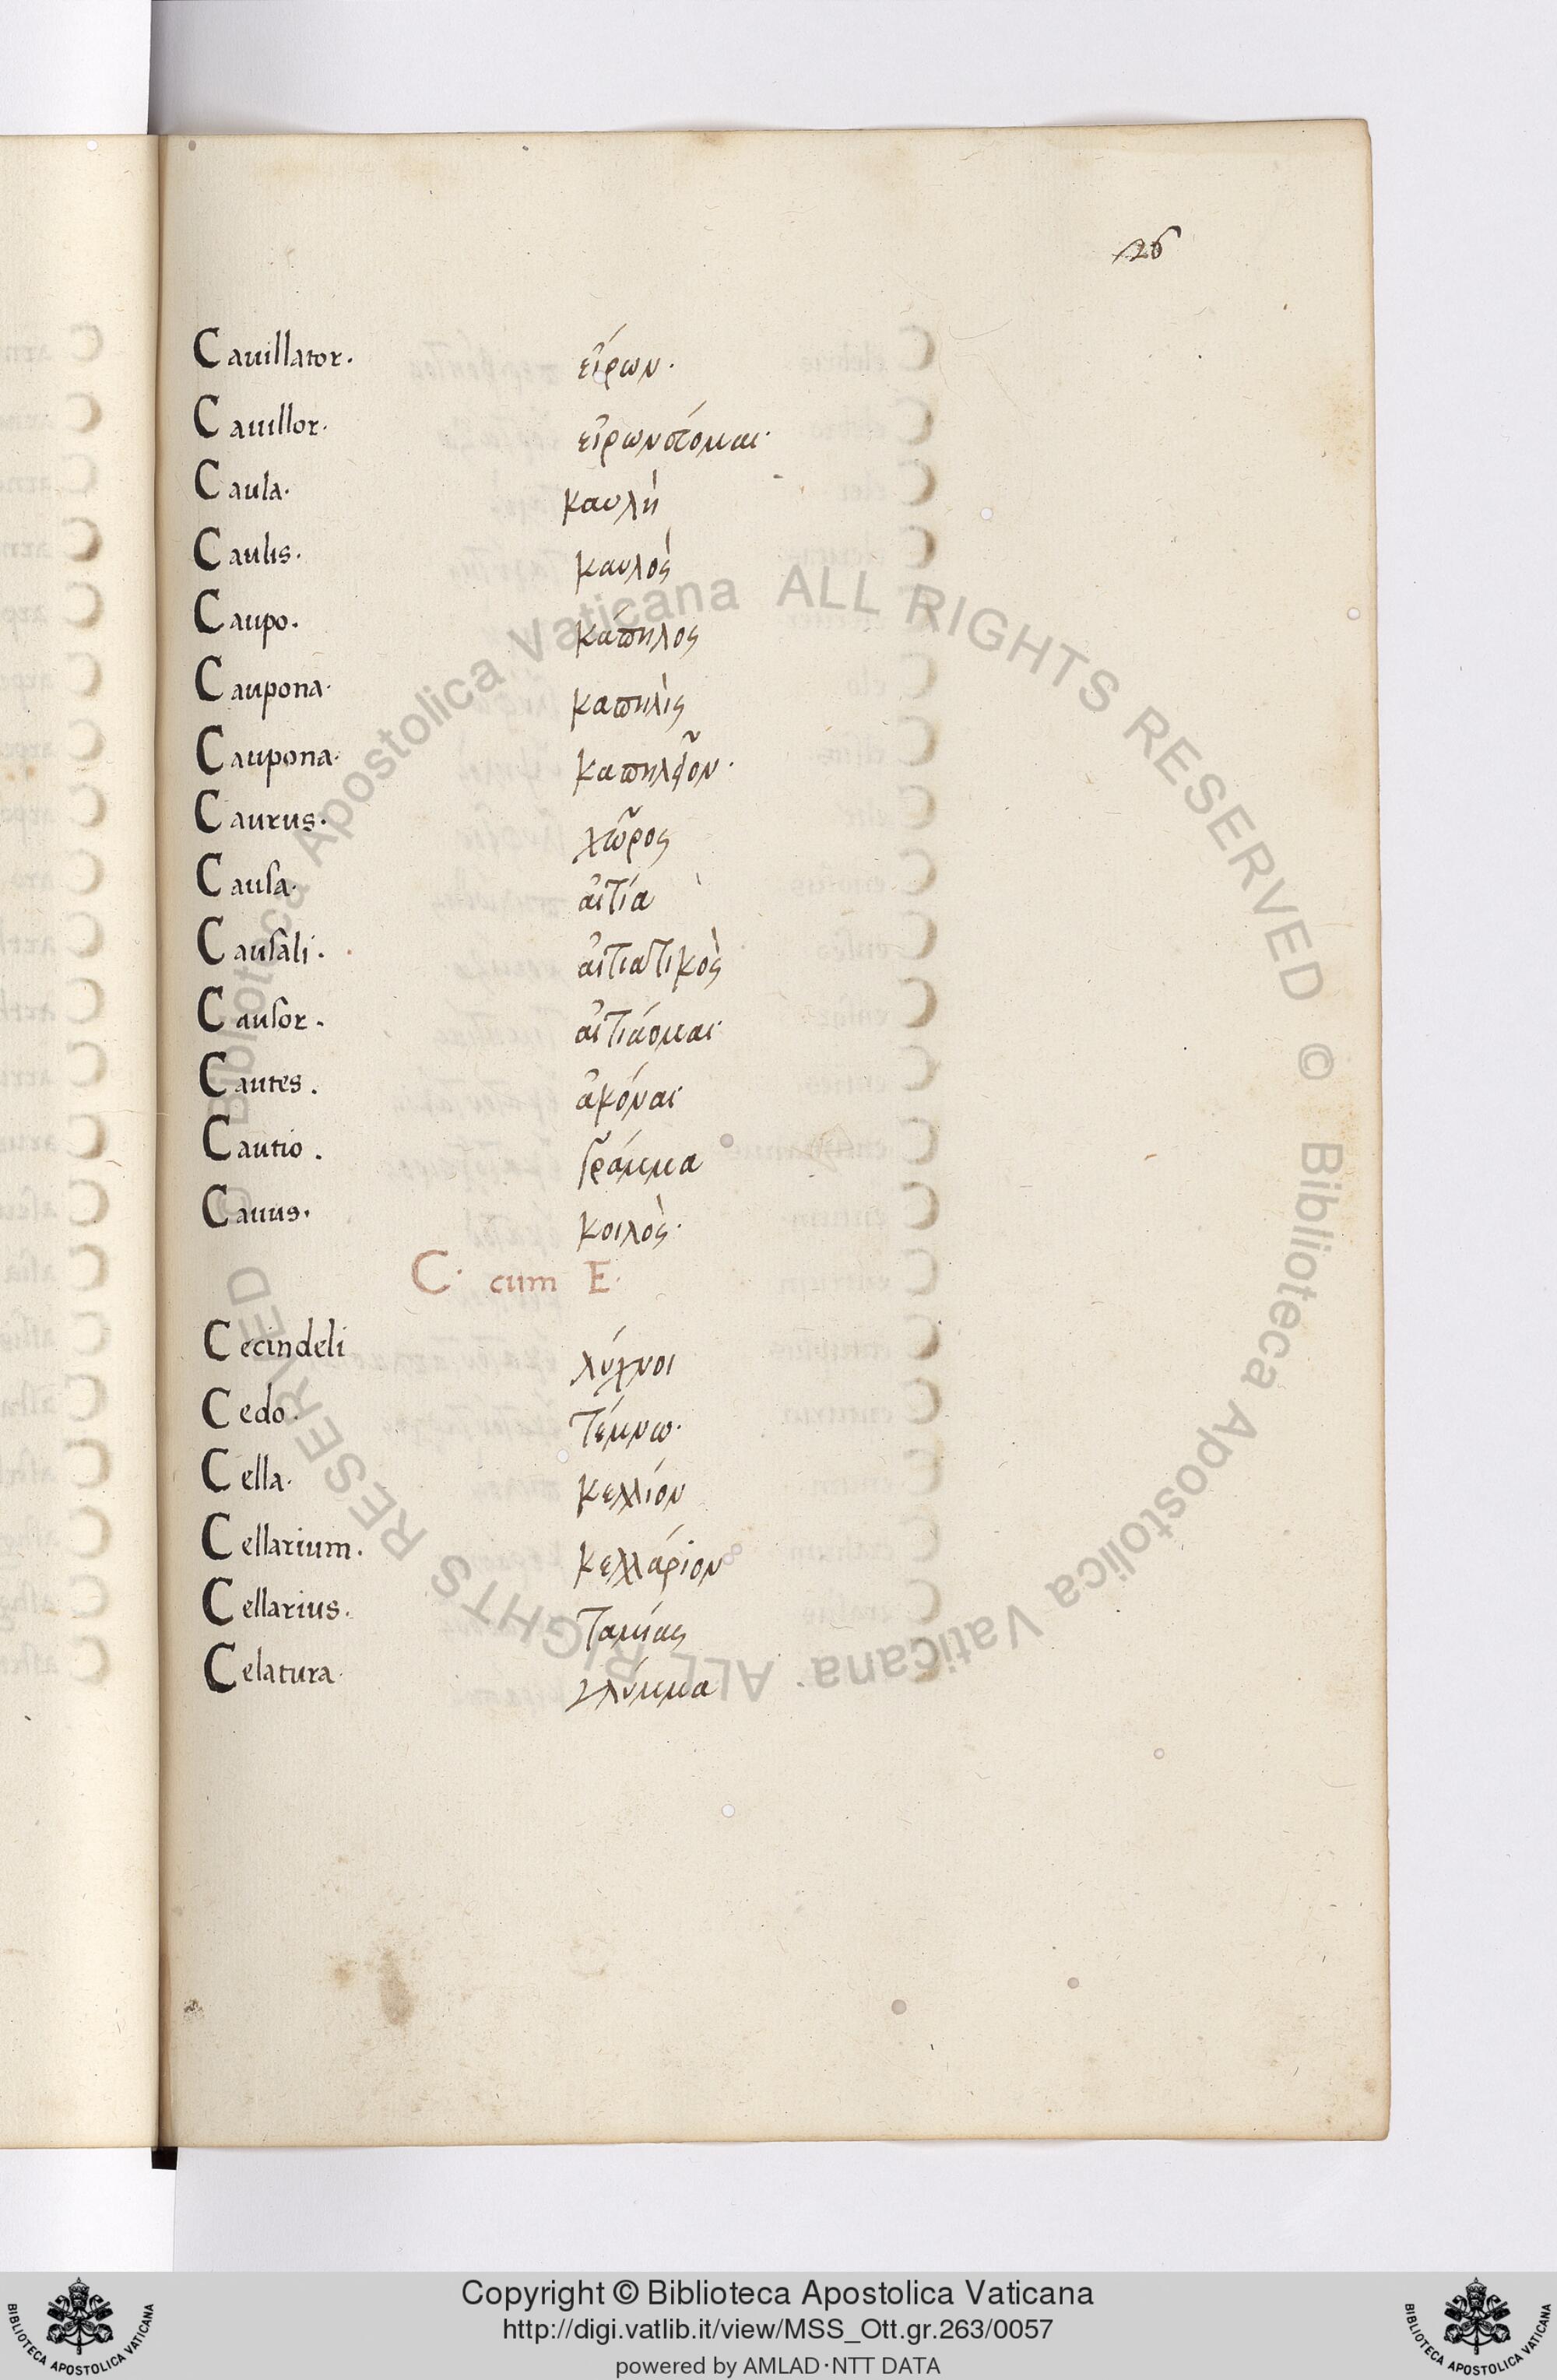 26
Cauillator. εἴρων.
Cauillor. εἰρωνεύομαι.
Caula. καυλὴ
Caulis. καυλὸς
Caupo. κάπηλος
Caupona. καπηλὶς
Caupona. καπηλεῖον.
Caurus. χῶρος
Causa. αἰτία
Causali. αἰτιατικὸς
Causor. αἰτιάομαι
Cautes. ἀκόναι
Cautio. γράμμα
Cauus. κοιλὸς.
C. cum E.
Cecindeli λύχνοι
Cedo. τέμνω.
Cella. κελλίον
Cellarium. κελλάριον
Cellarius. ταμίας
Celatura. γλύμμα
Biblioteca Apostolica Vaticana ALL RIGHTS RESERVED ©
Biblioteca Apostolica Vaticana. ALL RIGHTS RESERVED ©
Copyright © Biblioteca Apostolica Vaticana
http://digi.vatlib.it/view/MSS_Ott.gr.263/0057
powered by AMLAD·NTT DATA
BIBLIOTECA APOSTOLICA VATICANA
BIBLIOTECA APOSTOLICA VATICANA